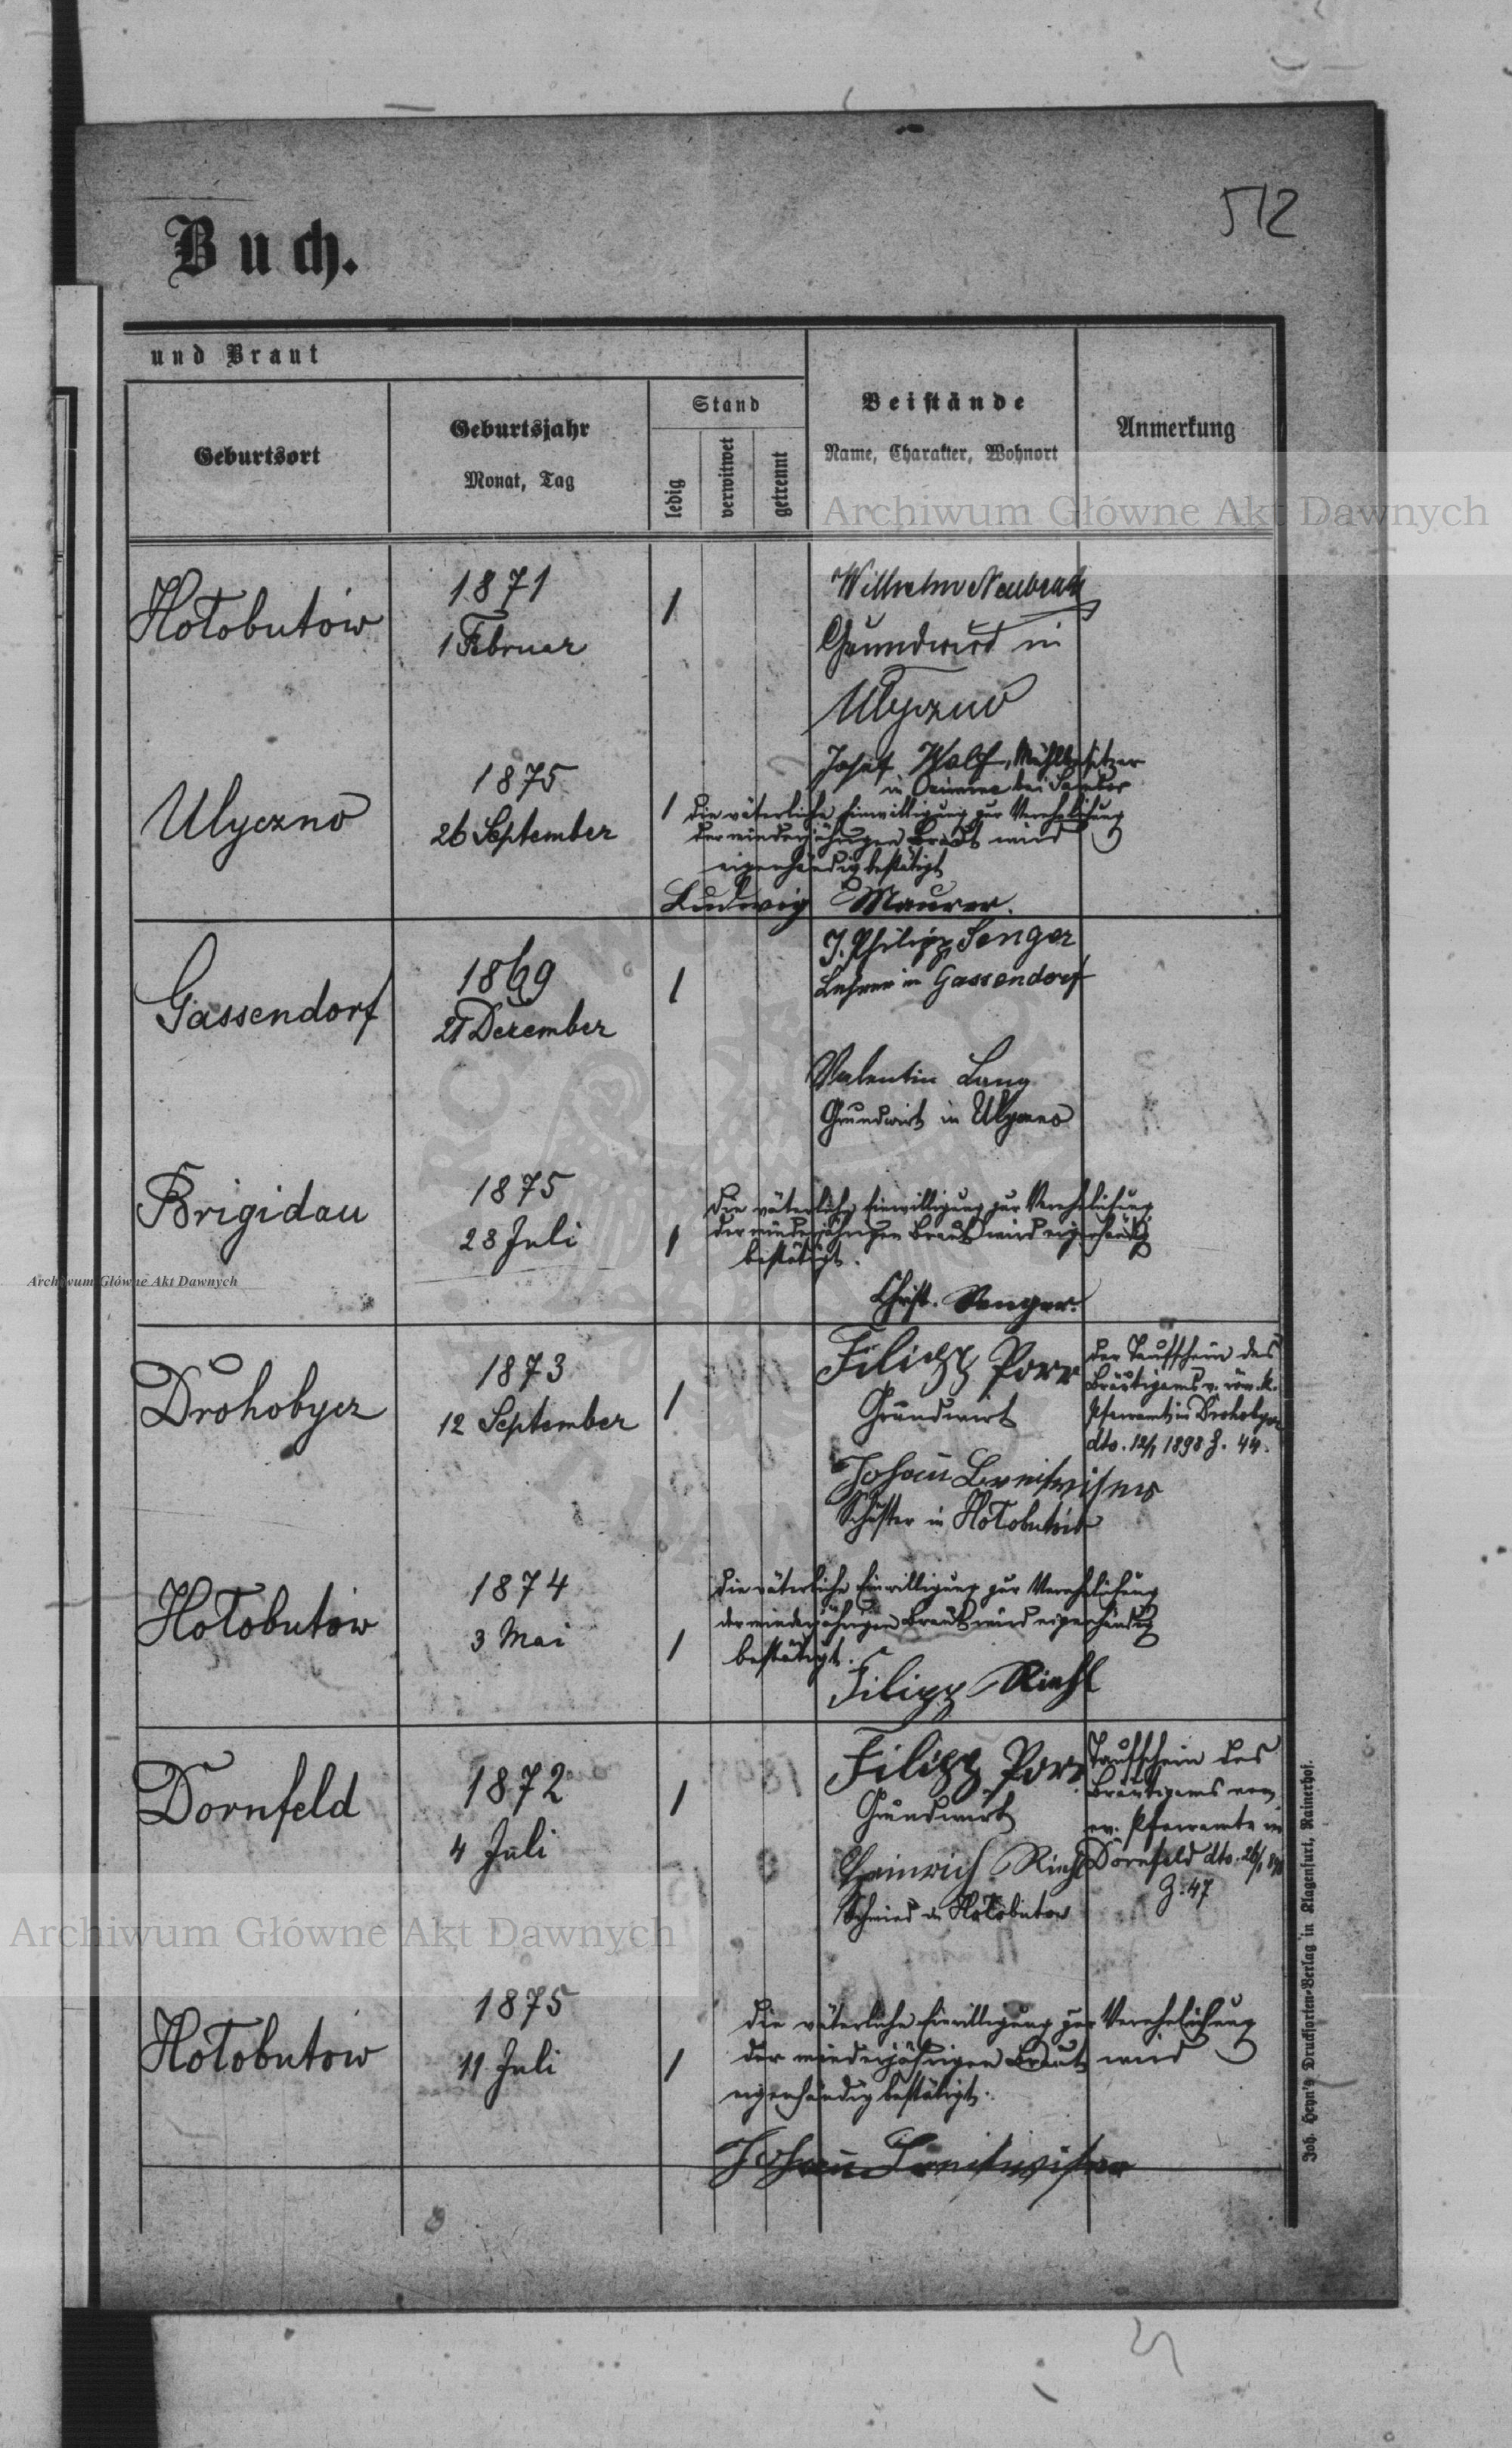 512
Buch.
und Braut
Geburtsort
Geburtsjahr
Monat, Tag
Stand
ledig
verwitwet
getrennt
Beistände
Name, Charakter, Wohnort
Anmerkung
Archiwum Główne Akt Dawnych
Hołobutów
1871
1 Februar
1
Wilhelm
Grundwirt in
Ulyczno
Ulyczno
1875
26 September
1
Josef Wolf, Mühlbesitzer
in bei Sambor
Die väterliche Einwilligung zur Verehelichung
der minderjährigen Braut wird
eigenhändig bestätigt
Ludwig Maurer.
Gassendorf
1869
21 Dezember
1
J. Philipp Senger
Lehrer in Gassendorf
Valentin Lang
Grundwirt in Ulyczno
Brigidau
1875
28 Juli
1
Die väterliche Einwilligung zur Verehelichung
der minderjährigen Braut wird eigenhändig
bestätigt.
Christ. Senger.
Archiwum Główne Akt Dawnych
Drohobycz
1873
12 September
1
Filipp Porr
Grundwirt
Johann Breitwieser
Schuster in Hołobutów
Der Taufschein des
Bräutigams v. röm. k.
Pfarramt in Drohobycz
dto. 12/1 1898 Z. 44.
Hołobutow
1874
3 Mai
1
Die väterliche Einwilligung zur Verehelichung
der minderjährigen Braut wird eigenhändig
bestätigt.
Filipp Riehl
Dornfeld
1872
4 Juli
1
Filipp Porr
Grundwirt
Heinrich Riehl
Schmied in Hołobutow
Taufschein des
Bräutigams vom
ev. Pfarramte in
Dornfeld dto. 26/1
Z. 47
Archiwum Główne Akt Dawnych
Hołobutow
1875
11 Juli
1
Die väterliche Einwilligung zur Verehelichung
der minderjährigen Braut wird
eigenhändig bestätigt.
Johann Breitwieser
Joh. Heyn's Drucksorten-Verlag in Klagenfurt, Rainerhof.